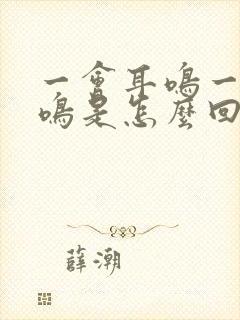 一會耳鳴一
鳴是怎麼回
薛潮